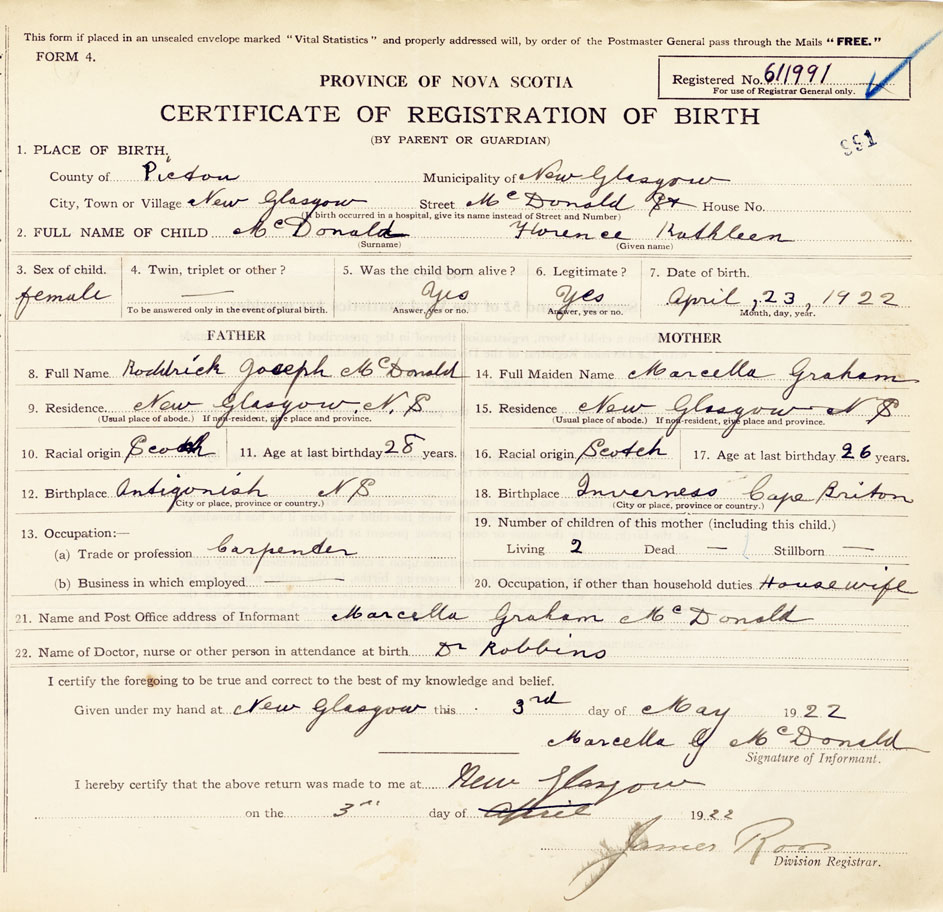 This form if placed in an unsealed envelope marked "Vital Statistics" and properly addressed will, by order of the Postmaster General pass through the Mails "FREE."
FORM 4.
Registered No. 611991
For use of Registrar General only.
PROVINCE OF NOVA SCOTIA
CERTIFICATE OF REGISTRATION OF BIRTH
(BY PARENT OR GUARDIAN)
991
1. PLACE OF BIRTH.
County of Picton Municipality of New Glasgow
City, Town or Village New Glasgow Street McDonald St House No.
(If birth occurred in a hospital, give its name instead of Street and Number)
2. FULL NAME OF CHILD McDonald Florence Kathleen
(Surname) (Given name)
3. Sex of child. 4. Twin, triplet or other? 5. Was the child born alive? 6. Legitimate? 7. Date of birth.
female — Yes Yes April, 23, 1922
To be answered only in the event of plural birth. Answer, yes or no. Answer, yes or no. Month, day, year.
FATHER MOTHER
8. Full Name Roddrick Joseph McDonald 14. Full Maiden Name Marcella Graham
9. Residence New Glasgow, N.S 15. Residence New Glasgow N S
(Usual place of abode.) If non-resident, give place and province. (Usual place of abode.) If non-resident, give place and province.
10. Racial origin Scotch 11. Age at last birthday 28 years. 16. Racial origin Scotch 17. Age at last birthday 26 years.
12. Birthplace Antigonish N S 18. Birthplace Inverness Cape Briton
(City or place, province or country.) (City or place, province or country.)
13. Occupation:— 19. Number of children of this mother (including this child.)
(a) Trade or profession Carpender Living 2 Dead — Stillborn —
(b) Business in which employed — 20. Occupation, if other than household duties House wife
21. Name and Post Office address of Informant Marcella Graham McDonald
22. Name of Doctor, nurse or other person in attendance at birth Dr Robbins
I certify the foregoing to be true and correct to the best of my knowledge and belief.
Given under my hand at New Glasgow this 3rd day of May 1922
Marcella G McDonald
Signature of Informant.
I hereby certify that the above return was made to me at New Glasgow
on the 3rd day of April 1922
James Roo
Division Registrar.